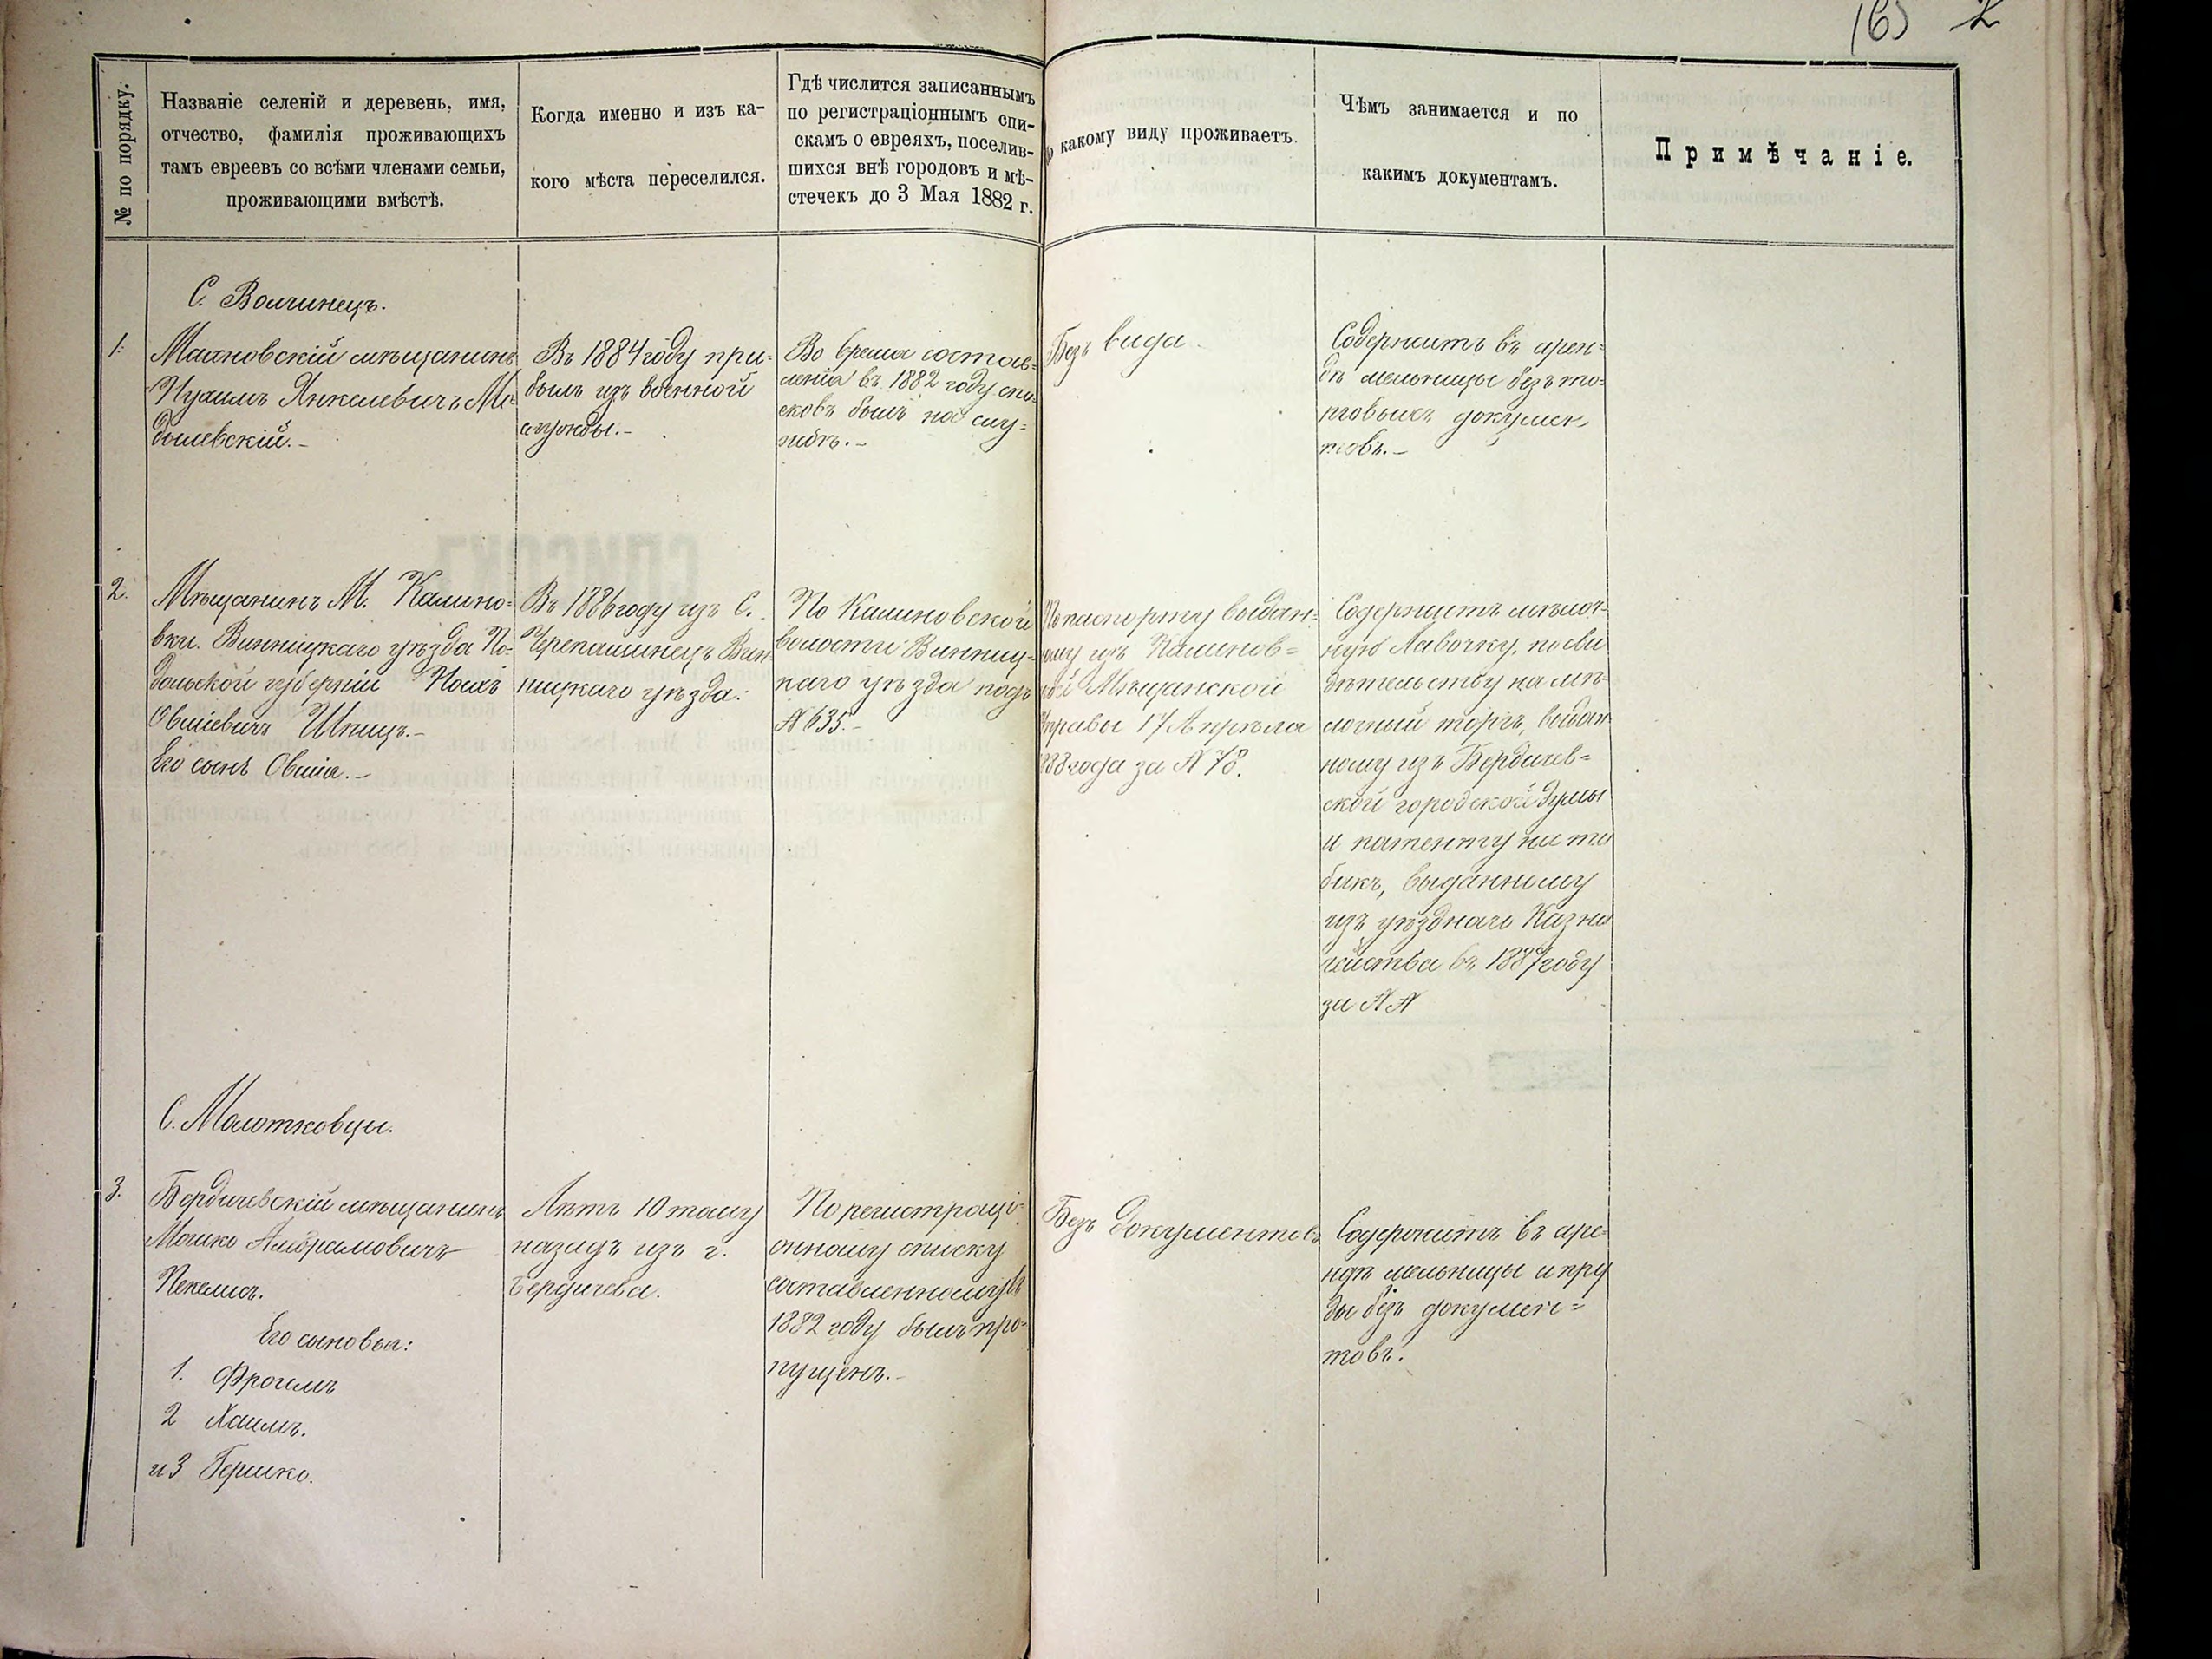 165 2
№ по порядку.
Названіе селеній и деревень, имя,
отчество, фамилія проживающихъ
тамъ евреевъ со всѣми членами семьи,
проживающими вмѣстѣ.
Когда именно и изъ ка-
кого мѣста переселился.
Гдѣ числится записаннымъ
по регистраціоннымъ спи-
скамъ о евреяхъ, поселив-
шихся внѣ городовъ и мѣ-
стечекъ до 3 Мая 1882 г.
какому виду проживаетъ.
Чѣмъ занимается и по
какимъ документамъ.
Примѣчаніе.
С. Волчинецъ.
1.
Махновскій мѣщанинъ
Нухимъ Янкелевичъ Ме-
болевскій.-
Въ 1884 году при-
былъ изъ военной
службы.-
Во время состав-
ленія въ 1882 году спи-
сковъ былъ на слу-
жбѣ.-
Безъ вида.
Содержитъ въ арен-
дѣ мельницы безъ то-
рговыхъ докумен-
товъ.-
2.
Мѣщанинъ М. Калино-
вки. Винницкаго уѣзда По-
дольской губерніи
Овшіевичъ Шпицъ.-
Его сынъ Овшія.-
Въ 1886 году изъ С.
Черепашинецъ Вин-
ницкаго уѣзда.-
По Калиновской
волости Винниц-
каго уѣзда подъ
№ 635.-
По паспорту выдан-
ному изъ Калинов-
кой Мѣщанской
Управы 17 Апрѣля
1888 года за № 78.
Содержитъ мѣлоч-
ную Лавочку, по сви
дѣтельству на мѣ-
лочный торгъ, выдан
ному изъ Бердичев-
ской городской Думы
и патенту на та
бакъ, выданному
изъ уѣзднаго Казна
чейства въ 1887 году
за № №
С. Молотковцы.
3.
Бердичевскій мѣщанинъ
Мошко Абрамовичъ
Пекелис.
Его сыновья:
1. Фроимъ
2 Хаимъ.
и 3 Гершко.
Лѣтъ 10 тому
назадъ изъ г.
Бердичева.
По регистраці-
онному списку
составленному въ
1882 году былъ про-
пущенъ.-
Безъ документовъ
Содержитъ въ аре-
ндѣ мельницы и пру
ды безъ докумен-
товъ.